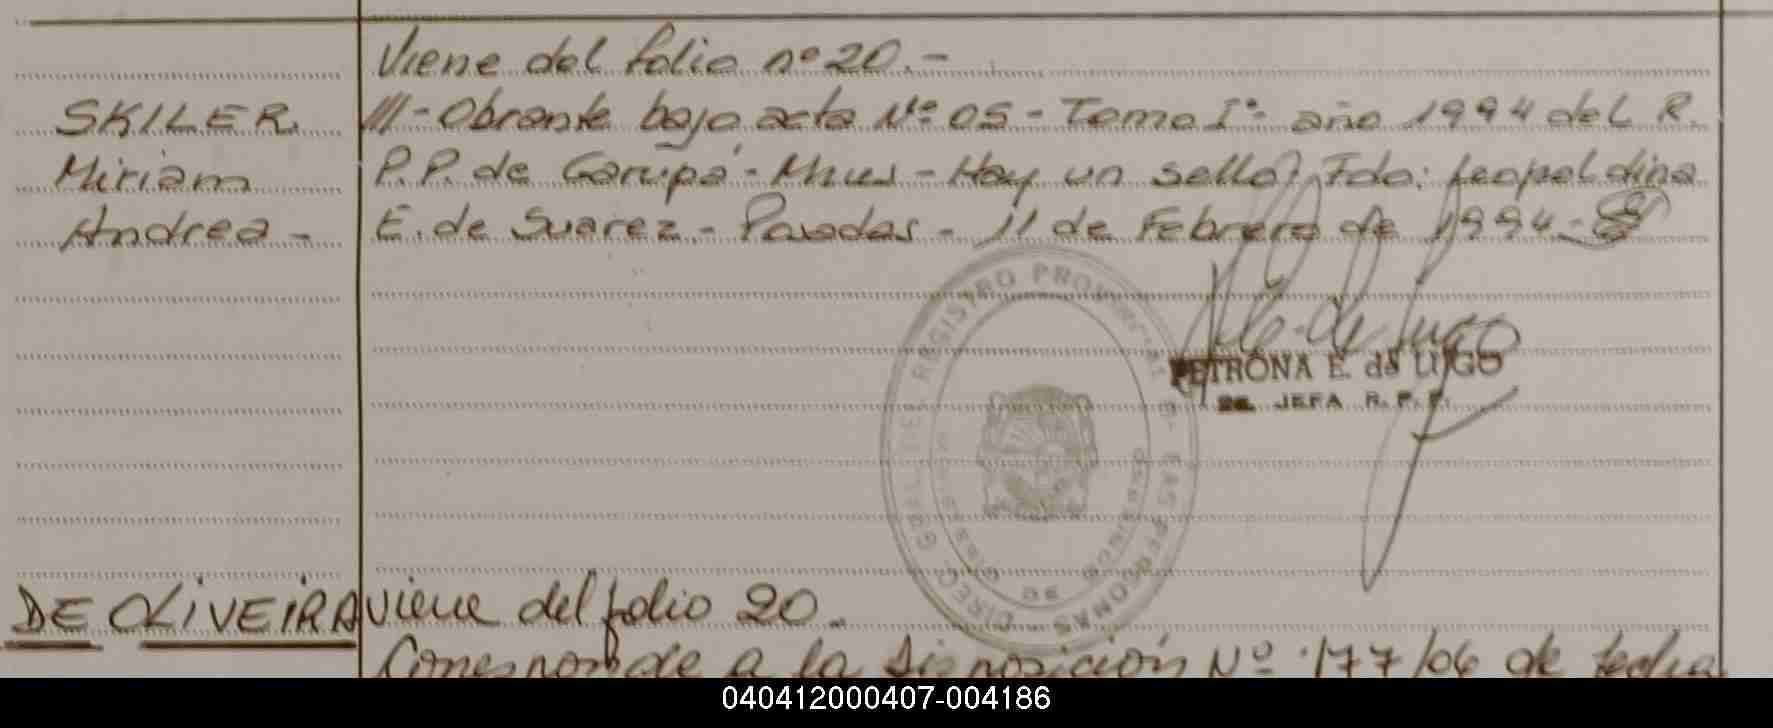 Viene del folio nº 20.-
SKILER III-Obrante bajo acta Nº 05 - Tomo Iº- año 1994 del R.
Miriam P.P. de Garupá - Mnes - Hay un sello? Fdo: Leopoldina
Andrea - E. de Suarez - Posadas - 11 de Febrero de 1994.-
DIREC. GRAL DEL REGISTRO PROVINCIAL DE LAS PERSONAS
PETRONA E. de LUGO
JEFA R. P. P.
DE OLIVEIRA viene del folio 20.
Corresponde a la Disposición Nº 177/06 de fecha
040412000407-004186